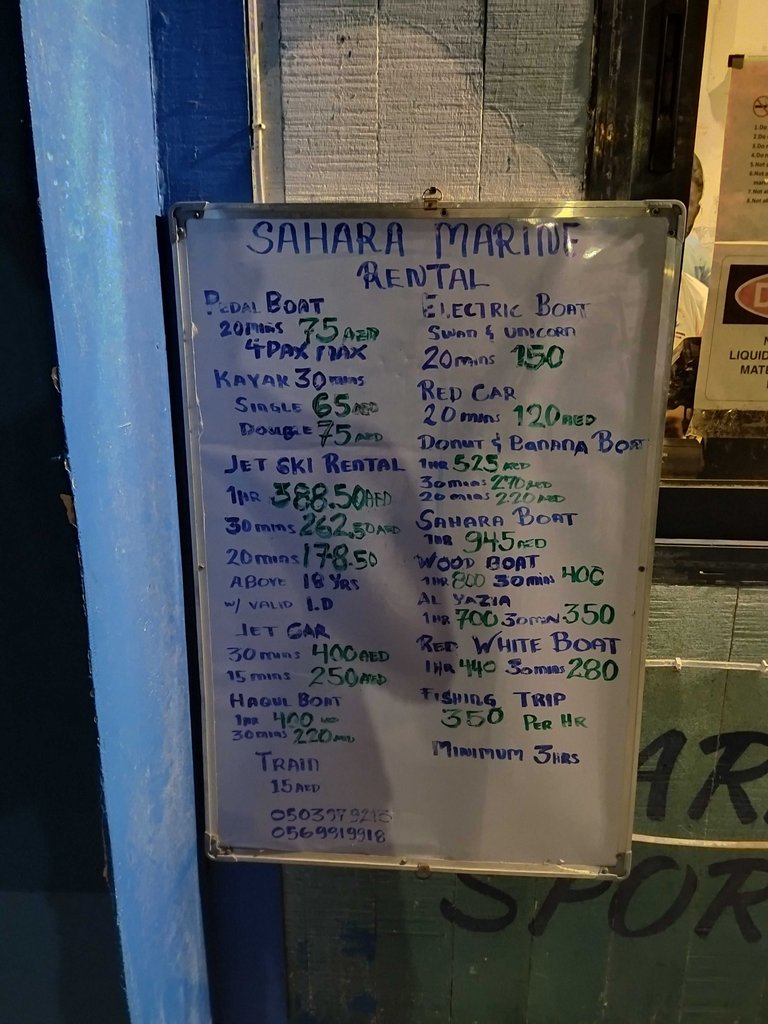 SAHARA MARINE
RENTAL
PEDAL BOAT
20 MINS 75 AED
4 PAX MAX
KAYAK 30 MINS
SINGLE 65 AED
DOUBLE 75 AED
JET SKI RENTAL
1 HR 388.50 AED
30 MINS 262.50 AED
20 MINS 178.50
ABOVE 18 YRS
W/ VALID I.D
JET CAR
30 MINS 400 AED
15 MINS 250 AED
HAOUL BOAT
1 HR 400 AED
30 MINS 220 AED
TRAIN
15 AED
0569919918
ELECTRIC BOAT
SWAN & UNICORN
20 MINS 150
RED CAR
20 MINS 120 AED
DONUT & BANANA BOAT
1 HR 525 AED
30 MINS 270 AED
20 MINS 220 AED
SAHARA BOAT
1 HR 945 AED
WOOD BOAT
1 HR 800 30 MIN 400
AL YAZIA
1 HR 700 30 MIN 350
RED WHITE BOAT
1 HR 440 30 MINS 280
FISHING TRIP
350 PER HR
MINIMUM 3 HRS
LIQUID
MATE
AR
SPOR